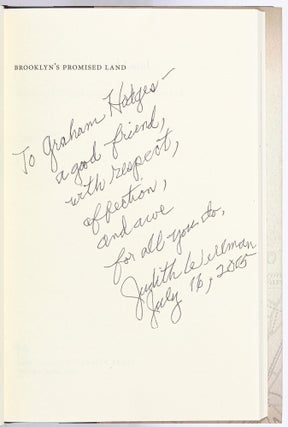 BROOKLYN'S PROMISED LAND
To Graham Hodges—
a good friend,
with respect,
affection,
and awe
for all you do,
Judith Wellman
July 16, 2015